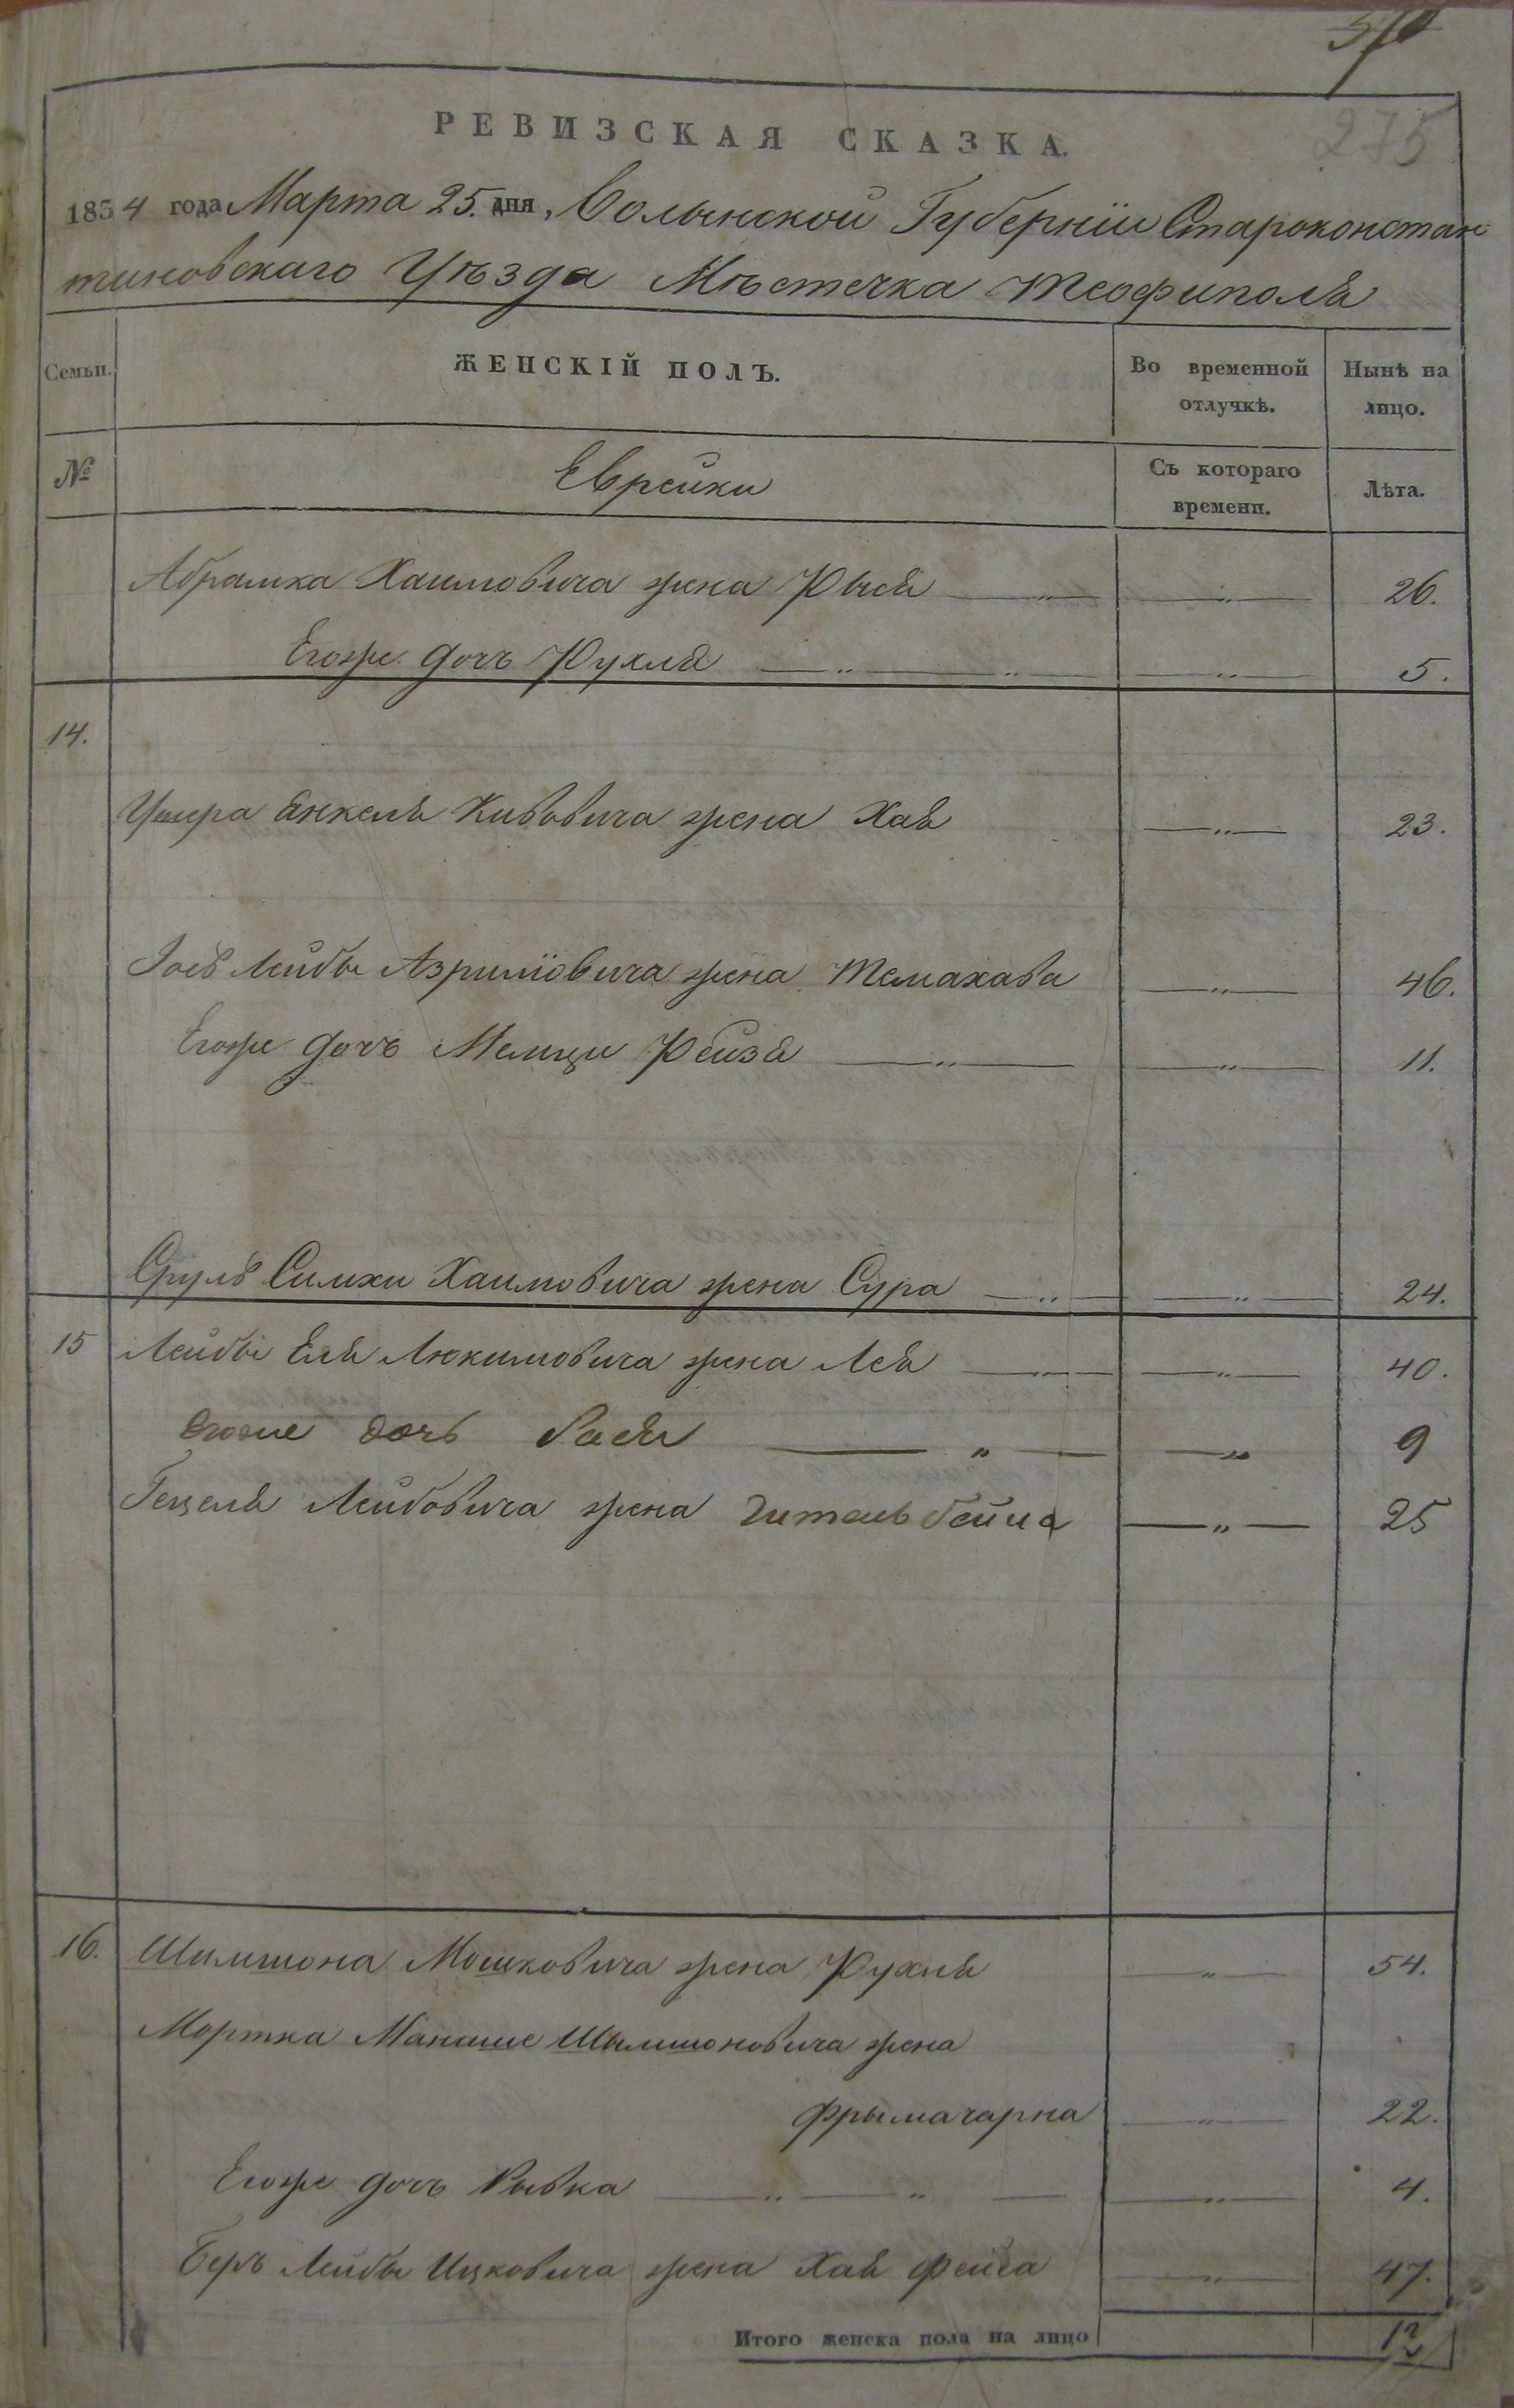 275
РЕВИЗСКАЯ СКАЗКА.
1834 года Марта 25. дня, Волынской Губернїи Староконстан
тиновскаго Уѣзда Мѣстечка Теофиполя
Семьи. ЖЕНСКІЙ ПОЛЪ. Во временной отлучкѣ. Нынѣ на лицо.
№ Еврейки Съ котораго времени. Лѣта.
Абрамка Хаимовича жена Рыся — „ — — „ — 26.
Егоже дочь Рухля — „ — „ — — „ — 5.
14.
Ушера Янкеля Кивовича жена Хая — „ — 23.
Іось Лейбы Азрилїовича жена Темахава — „ — 46.
Егоже дочь Менци Рейзя — „ — — „ — 11.
Сруль Симхи Хаимовича жена Сура — „ — — „ — 24.
15 Лейбы Еля Люкимовича жена Лея — „ — — „ — 40.
Егоже дочь Рася — „ — — „ 9
Гецеля Лейбовича жена Гитель бейла — „ — 25
16. Шимшона Мошковича жена Рухля — „ — 54.
Мортка Манаше Шымшоновича жена
Фрымачарна — „ — 22.
Егоже дочь Рывка — „ — „ — — „ — 4.
Беръ Лейбы Ицковича жена Хая Фейга — „ — 47.
Итого женска пола на лицо 12